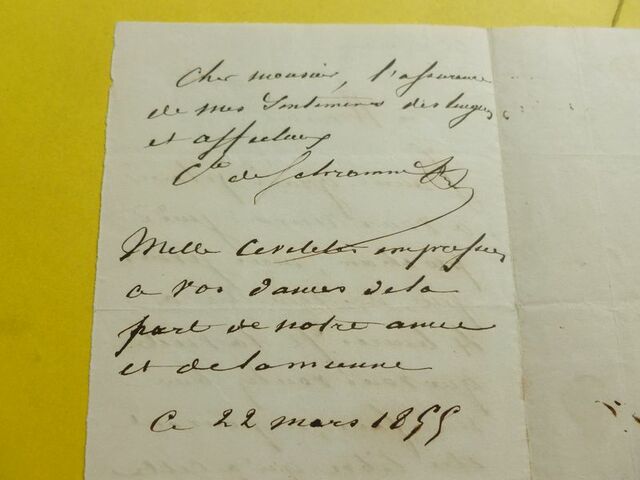 Cher monsieur, l'assurance
de mes Sentimens distingués
et affectueux
Cte de Schramm
Mille Civilités empressées
a vos dames de la
part de notre amie
et de la mienne
Ce 22 mars 1855